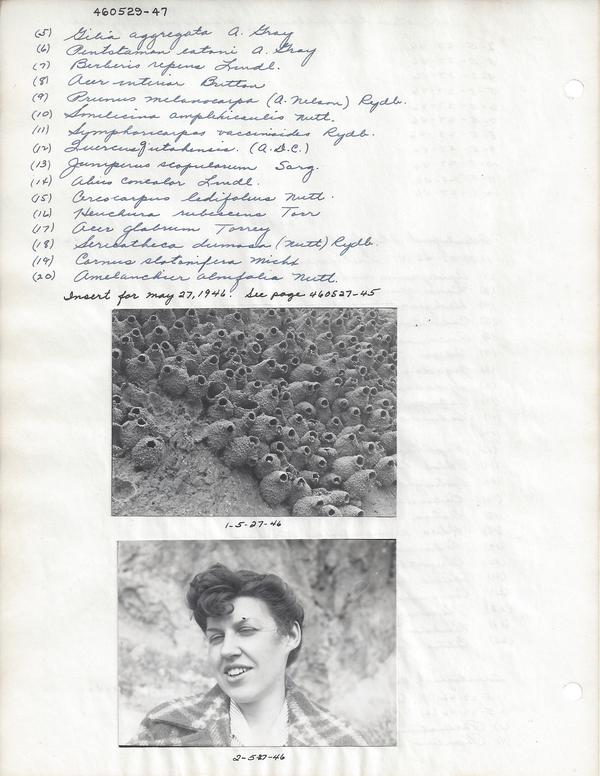 460529-47
(5) Gilia aggregata A. Gray
(6) Pentstamon eatoni A. Gray
(7) Berberis repens Lindl.
(8) Acer interior Britton
(9) Prunus melanocarpa (A. Nelson) Rydb.
(10) Smilicina amplexicaulis Nutt.
(11) Symphoricarpos vaccinoides Rydb.
(12) Quercus utahensis. (A.D.C.)
(13) Juniperus scopulorum Sarg.
(14) Abies concolor Lindl.
(15) Cercocarpus ledifolius Nutt.
(16) Heuchera rubescens Torr
(17) Acer glabrum Torrey
(18) Sericotheca dumosa (Nutt) Rydb.
(19) Cornus stolonifera Michx
(20) Amelanchier alnifolia Nutt.
Insert for May 27, 1946. See page 460527-45
1-5-27-46
2-5-27-46